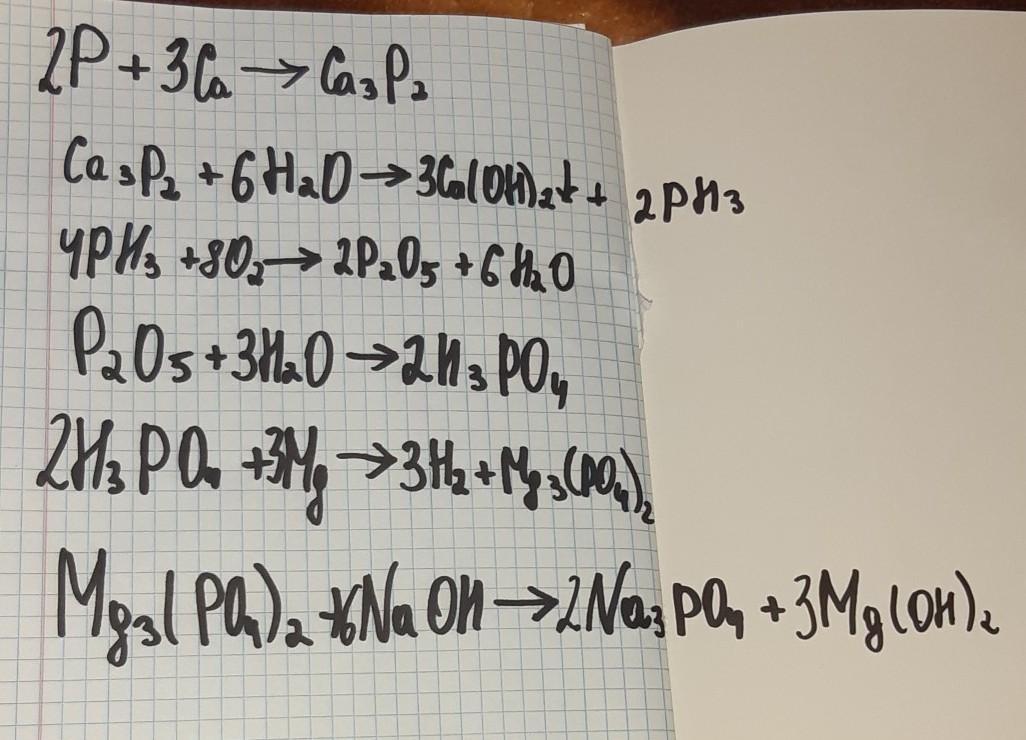 2P + 3Ca → Ca₃P₂
Ca₃P₂ + 6H₂O → 3Ca(OH)₂↓ + 2PH₃
4PH₃ + 8O₂ → 2P₂O₅ + 6H₂O
P₂O₅ + 3H₂O → 2H₃PO₄
2H₃PO₄ + 3Mg → 3H₂ + Mg₃(PO₄)₂
Mg₃(PO₄)₂ + 6NaOH → 2Na₃PO₄ + 3Mg(OH)₂